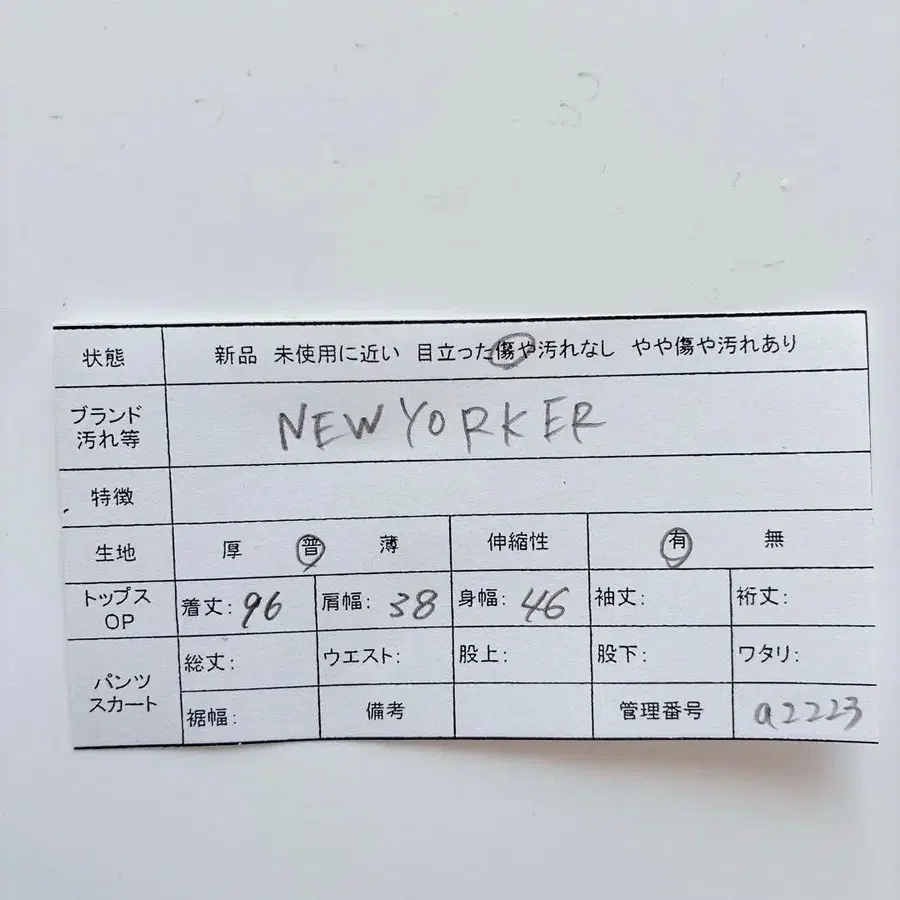 状態 新品 未使用に近い 目立った傷や汚れなし やや傷や汚れあり
ブランド
汚れ等
NEWYORKER
特徴
生地 厚 普 薄 伸縮性 有 無
トップス
OP
着丈: 96 肩幅: 38 身幅: 46 袖丈: 裄丈:
パンツ
スカート
総丈: ウエスト: 股上: 股下: ワタリ:
裾幅: 備考 管理番号 a2223